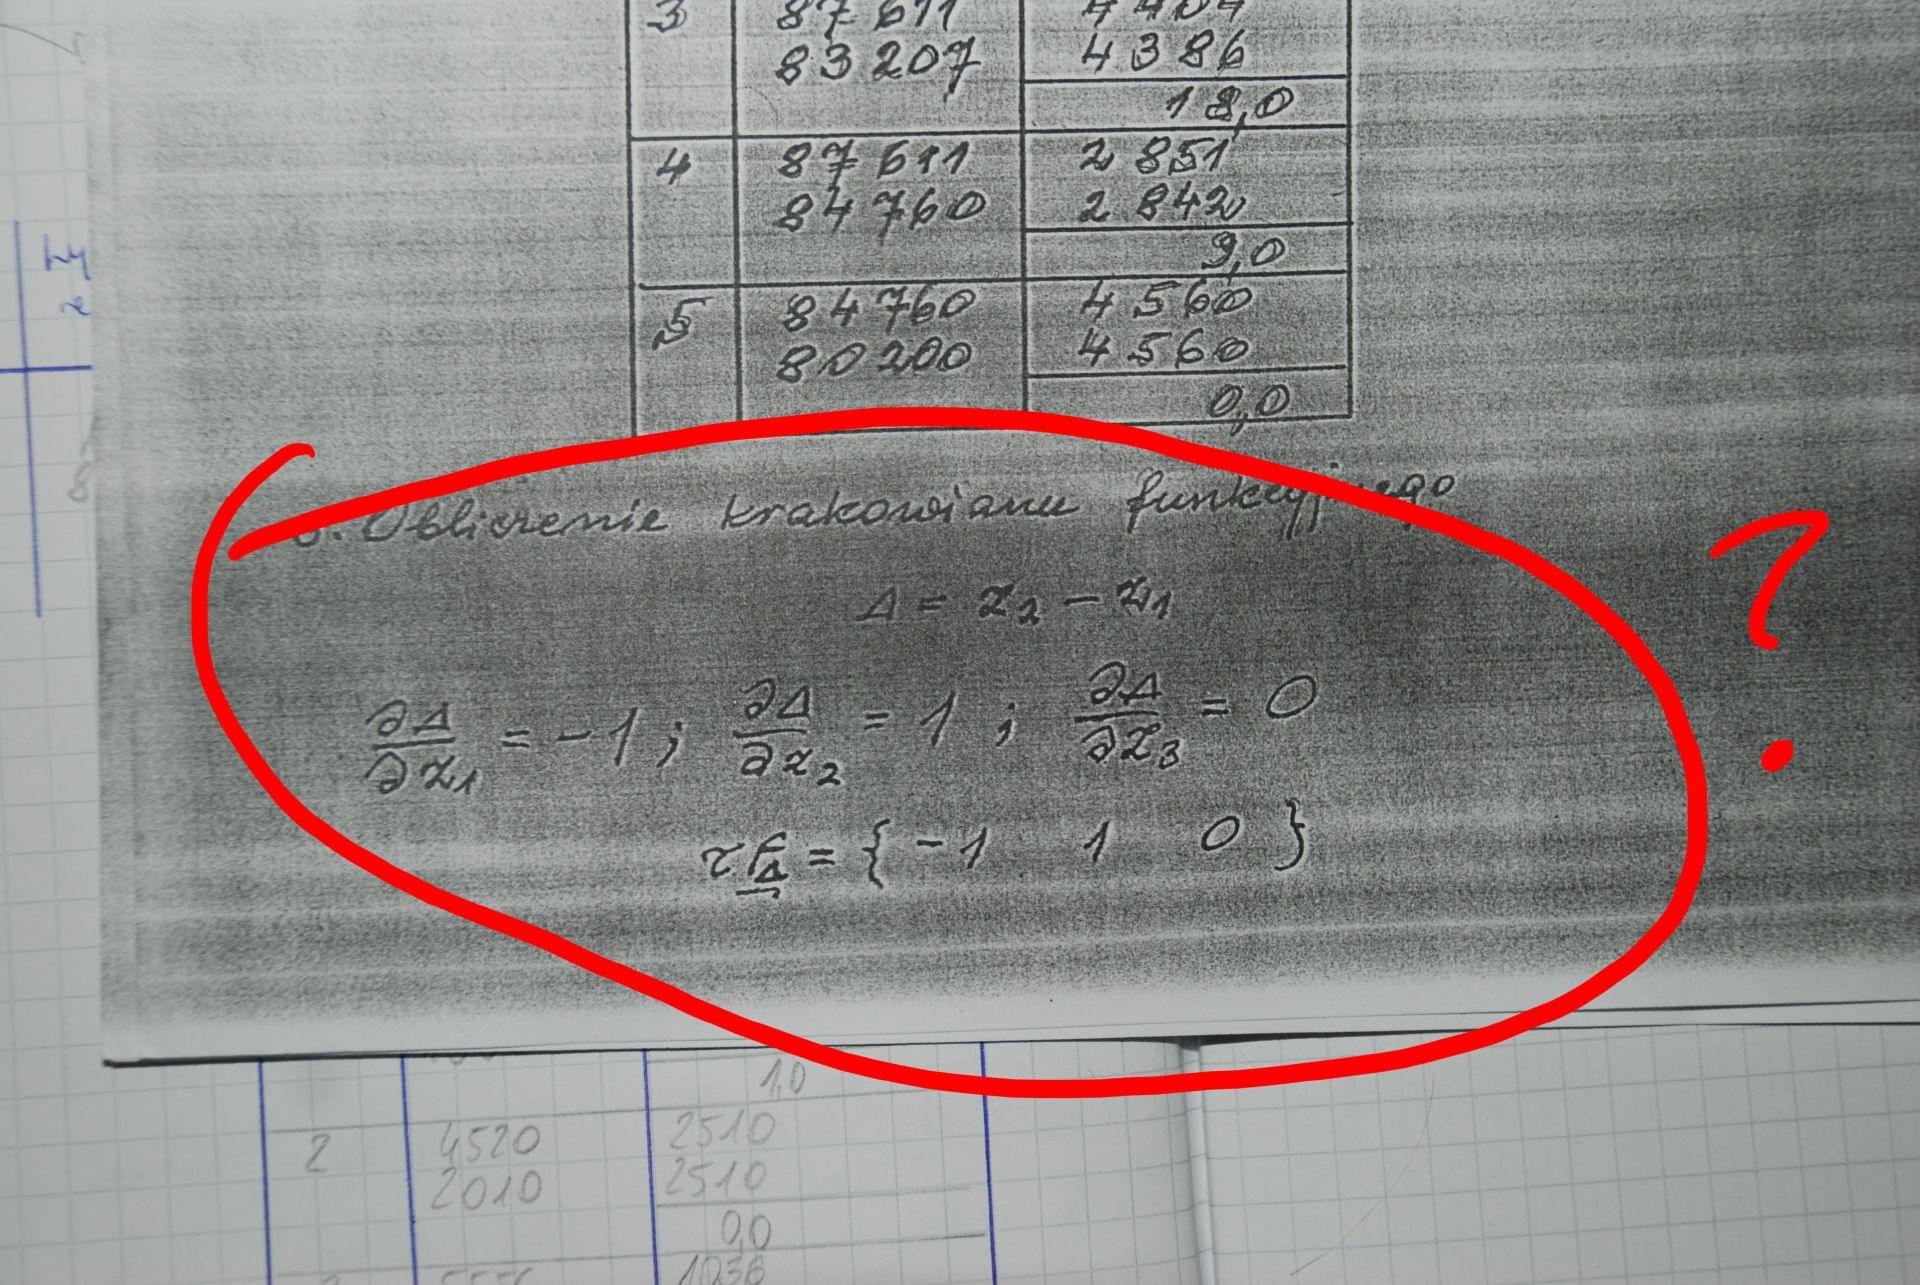 3 87 611 4 404
83 207 4 386
18,0
4 87 611 2 851
84 760 2 842
9,0
5 84 760 4 560
80 200 4 560
0,0
Obliczenie krakowianu funkcyjnego
Δ = z₂ − z₁
∂Δ/∂z₁ = −1 ; ∂Δ/∂z₂ = 1 ; ∂Δ/∂z₃ = 0
τF_Δ = { −1 1 0 }
?
1,0
2 4520 2510
2010 2510
0,0
1036